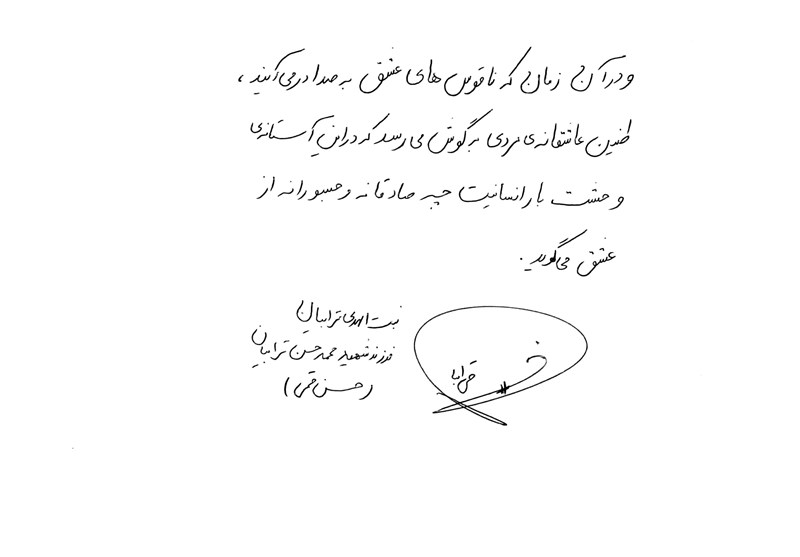 و در آن زمان که ناقوس های عشق به صدا در می آیند،
طنین عاشقانه ی مردی به گوش می رسد که در این آستانه ی
وحشت بار انسانیت چه صادقانه و جسورانه از
عشق می گوید.
بنت الهدی ترابیان
فرزند شهید محمد حسن ترابیان
(حسن قمی)